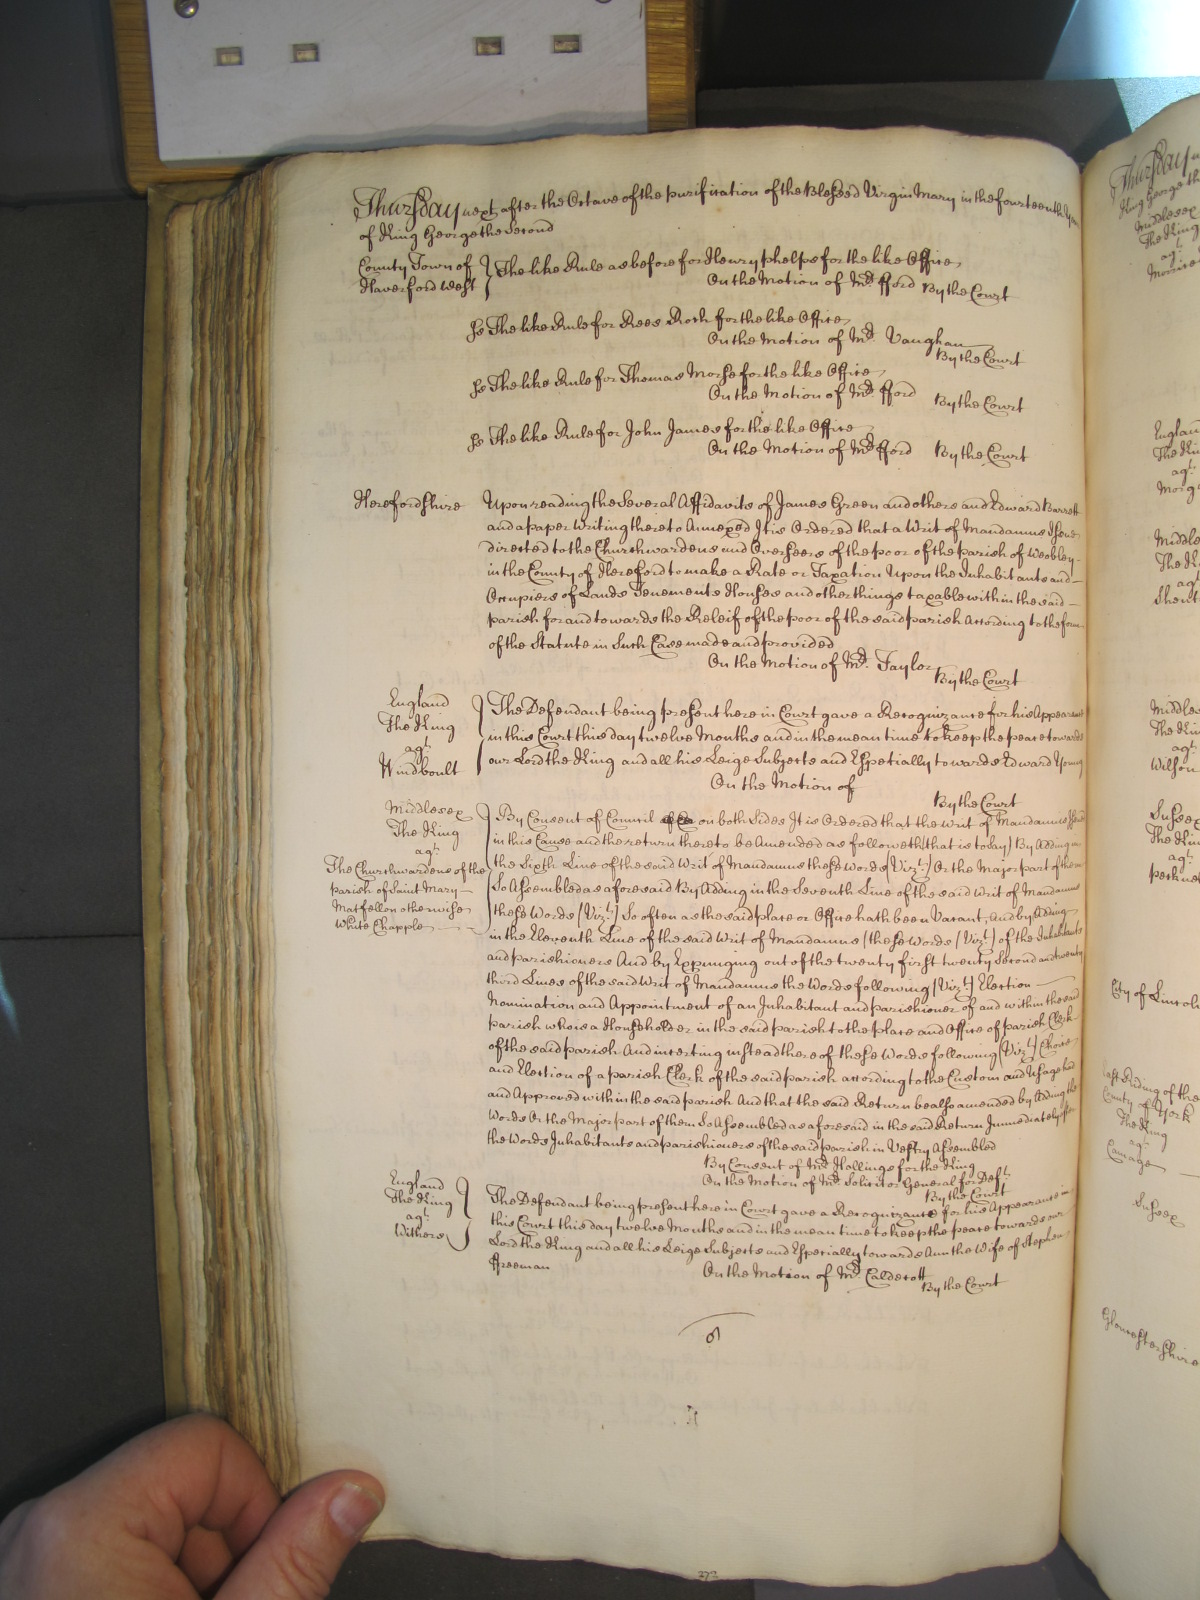 Thursday next after the Octave of the purification of the Blessed Virgin Mary in the fourteenth Year
of King George the Second
County Town of
Haverford West
The like Rule as before for Henry Phelps for the like Office,
On the Motion of Mr. fford By the Court
ss The like Rule for Rees Rosh for the like Office,
On the Motion of Mr. Vaughan
By the Court
ss The like Rule for Thomas Morse for the like Office,
On the Motion of Mr. fford By the Court
ss The like Rule for John James for the like Office
On the Motion of Mr. fford By the Court
Herefordshire
Upon reading the Several Affidavits of James Green and others and Edward Barrett
and a paper Writing thereto Annexed It is Ordered that a Writ of Mandamus Issue
directed to the Churchwardens and Overseers of the poor of the parish of Weobley
in the County of Hereford to make a Rate or Taxation Upon the Inhabitants and
Occupiers of Lands Tenements Houses and other things taxable within the said
parish for and towards the Releif of the poor of the said parish According to the form
of the Statute in Such Case made and provided
On the Motion of Mr. Taylor
By the Court
England
The King
agt.
Windboult
The Defendant being present here in Court gave a Recognizance for his Appearance
in this Court this day twelve Months and in the mean time to keep the peace towards
our Lord the King and all his Leige Subjects and Especially towards Edward Young
On the Motion of
By the Court
Middlesex
The King
agt.
The Churchwardens of the
parish of Saint Mary
Matfellon otherwise
White Chapple
By Consent of Council on both Sides It is Ordered that the Writ of Mandamus Issued
in this Cause and the return thereto be Amended as followeth (that is today) By Adding in
the Sixth Line of the said Writ of Mandamus these Words (Vizt.) Or the Major part of them
So Assembled as aforesaid By Adding in the Seventh Line of the said Writ of Mandamus
these Words (Vizt.) So often as the said place or Office hath been Vacant, And by Adding
in the Eleventh Line of the said Writ of Mandamus (these Words (Vizt.) of the Inhabitants
and parishioners And by Expunging out of the twenty first twenty Second and twenty
third Lines of the said Writ of Mandamus the Words following (Vizt.) Election
Nomination and Appointment of an Inhabitant and parishioner of and within the said
parish who is a Householder in the said parish to the place and Office of parish Clerk
of the said parish And inserting instead thereof these Words following (Vizt.) Choice
and Election of a parish Clerk of the said parish according to the Custom and Usage had
and Approved within the said parish And that the said Return be also amended by Adding the
Words Or the Major part of them So Assembled as aforesaid in the said Return Immediately after
the Words Inhabitants and parishioners of the said parish in Vestry Assembled
By Consent of Mr. Hollings for the King
On the Motion of Mr. Solicitor General for Deft.
By the Court
England
The King
agt.
Withers
The Defendant being present here in Court gave a Recognizance for his Appearance in
this Court this day twelve Months and in the mean time to keep the peace towards our
Lord the King and all his Leige Subjects and Especially towards Ann the Wife of Stephen
ffreeman
On the Motion of Mr. Caldecott
By the Court
Thursday
King George the
Middlesex
The King
agt.
England
The Kin
agt.
Morg
Middle
The K
agt.
Shent
Middles
The Kin
agt.
Wilson
Sussex
The Kin
agt.
City of Lincoln
East Riding of the
County of York
The King
agt.
Sussex
Gloucestershire